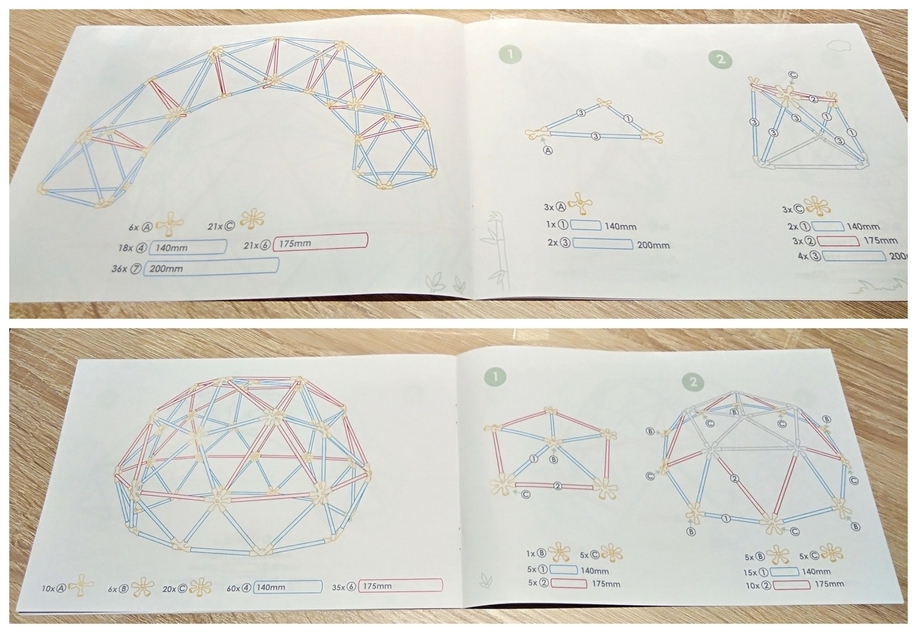 6x A 21x C
18x 4 140mm 21x 6 175mm
36x 7 200mm
1
3
1
3
A
3x A
1x 1 140mm
2x 3 200mm
2
C
2
3
3
3
1
1
3
3x C
2x 1 140mm
3x 2 175mm
4x 3 200
10x A 6x B 20x C 60x 4 140mm 35x 6 175mm
1
1
B
2
C
1x B 5x C
5x 1 140mm
5x 2 175mm
2
B
B
B
C
C
C
C
2
B
1
C
B
5x B 5x C
15x 1 140mm
10x 2 175mm